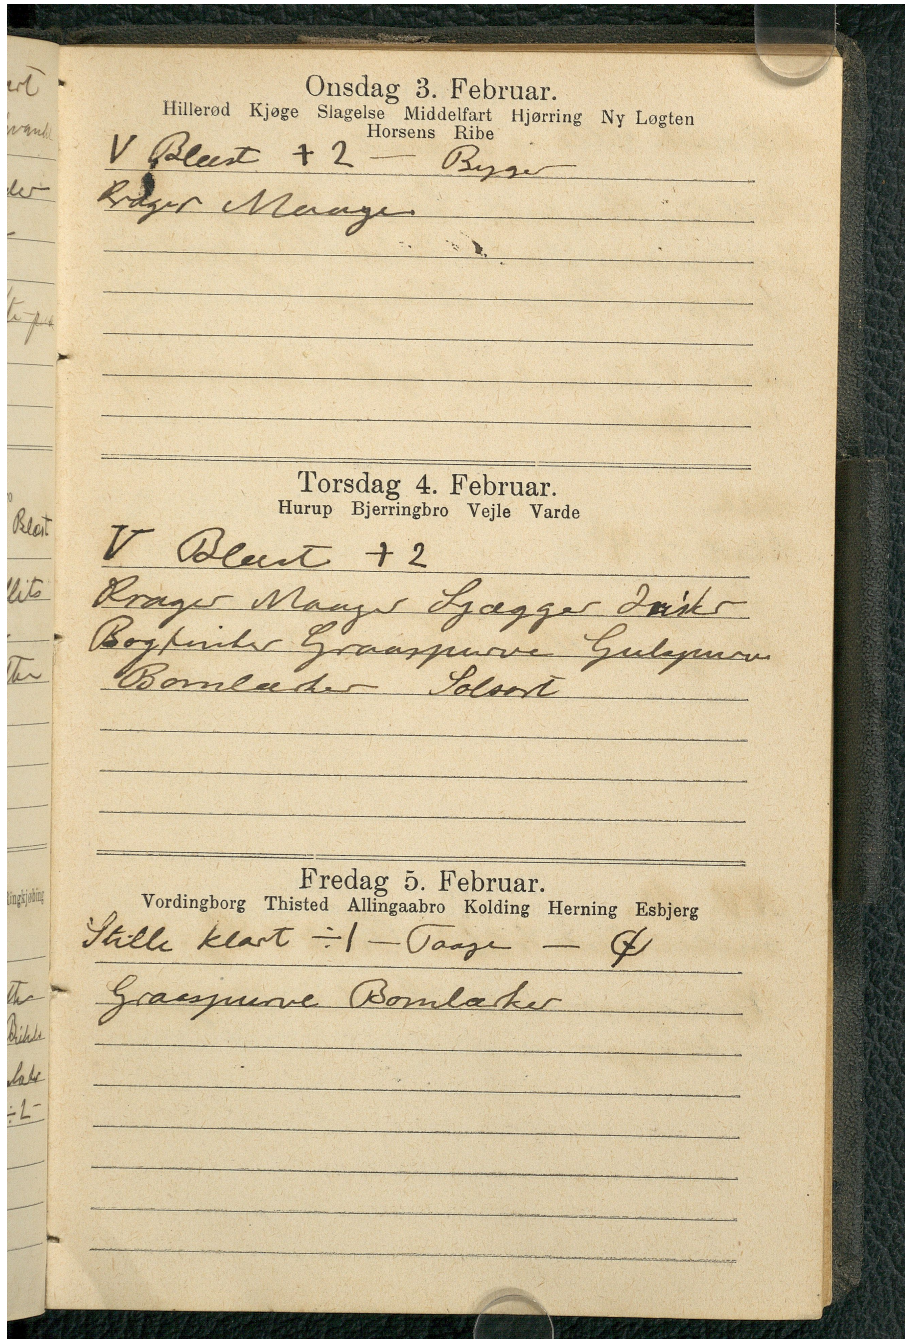 Onsdag 3. Februar.
Hillerød Kjøge Slagelse Middelfart Hjørring Ny Løgten
Horsens Ribe
V Blæst + 2 — Byger
Krager Maager
Torsdag 4. Februar.
Hurup Bjerringbro Vejle Varde
V Blæst + 2
Krager Maager Sjægger Irisker
Bogfinker Graaspurve Gulspurve
Bomlærker Solsort
Fredag 5. Februar.
Vordingborg Thisted Allingaabro Kolding Herning Esbjerg
Stille klart ÷1 — Taage —
Graaspurve Bomlærker